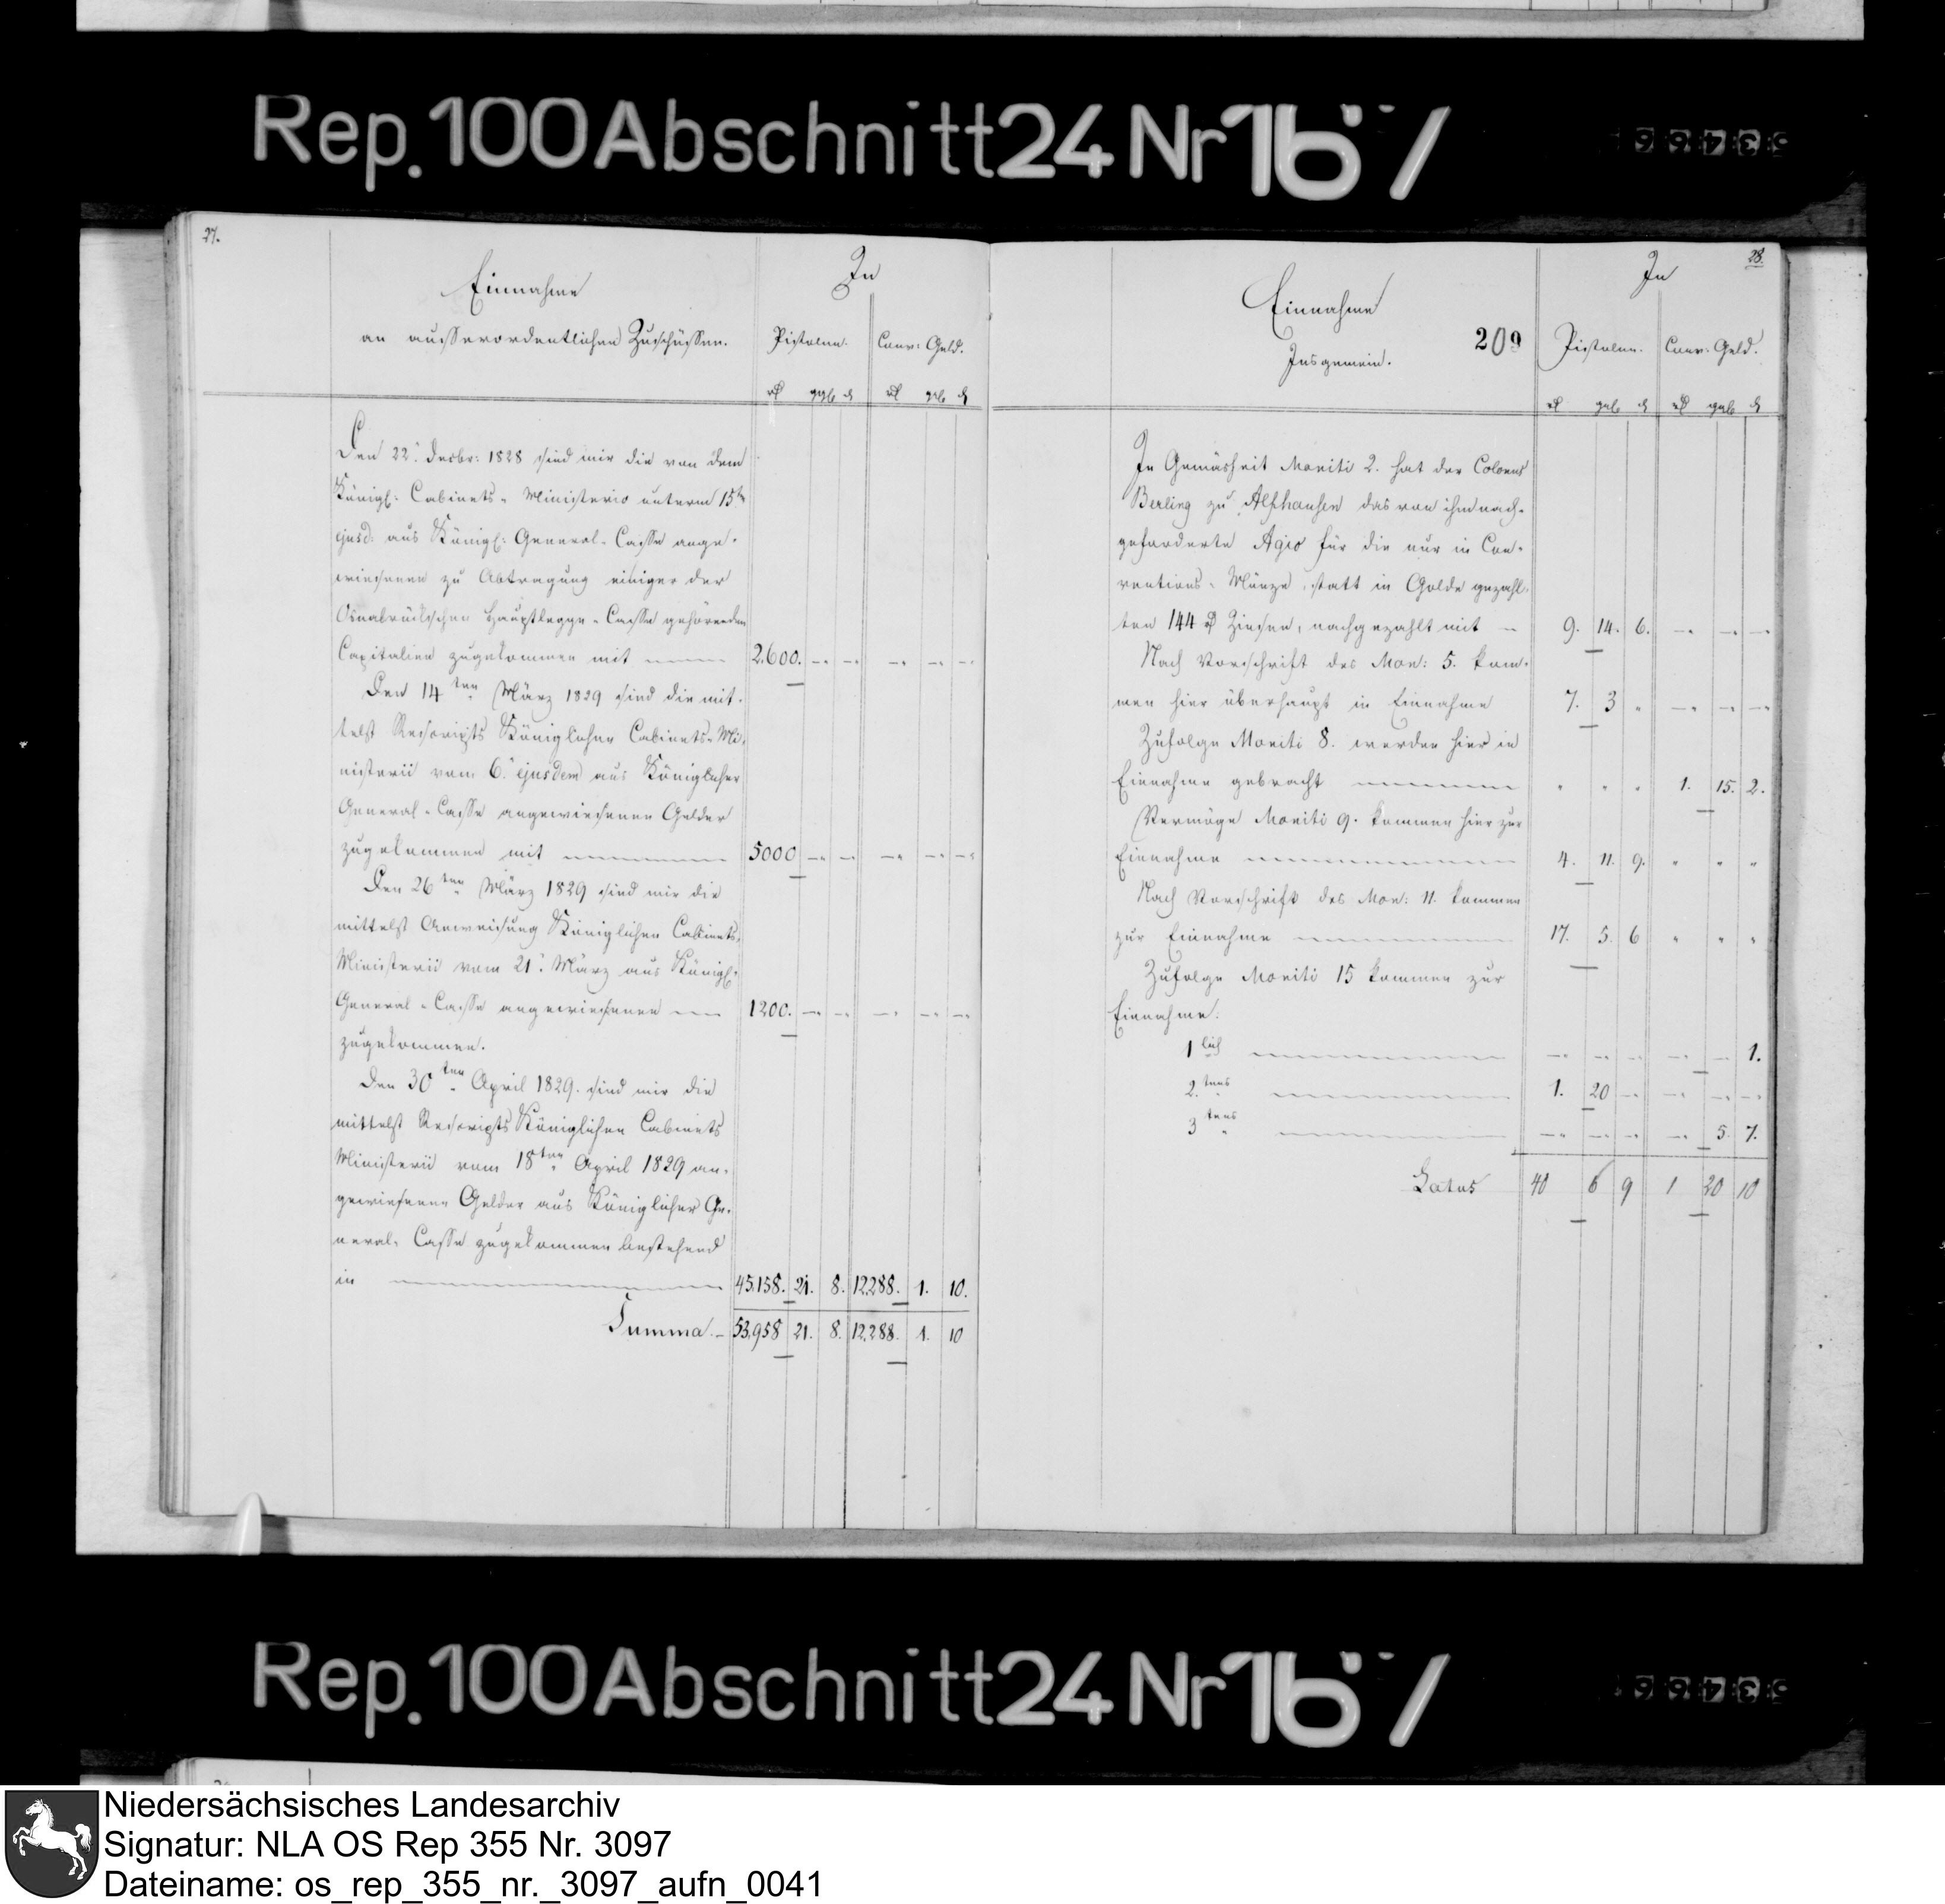 Rep.100Abschnitt24Nr167
27.
Einnahme
an ausserordentlichen Zuschüssen.
In
Pistolen. Conv: Geld.
rℓ ggl ₰ rℓ ggl ₰
Den 22.ⁿ Decbr: 1828 sind mir die von dem
Königl: Cabinets-Ministerio unterm 15ten
ejusd: aus Königl: General-Casse ange-
wiesenen zu Abtragung einiger der
Osnabrückschen Hauptlegge-Casse gehörenden
Capitalien zugekommen mit 2.600. -. -. -. -. -.
Den 14ten März 1829 sind die mit-
telst Rescripts Königlichen Cabinets-Mi-
nisterii vom 6.ⁿ ejusdem aus Königlicher
General-Casse angewiesenen Gelder
zugekommen mit 5000 -. -. -. -. -.
Den 26ten März 1829 sind mir die
mittelst Anweisung Königlichen Cabinets-
Ministerii vom 21.ⁿ März aus Königl:
General-Casse angewiesenen 1200. -. -. -. -. -.
zugekommen.
Den 30ten April 1829. sind mir die
mittelst Rescripts Königlichen Cabinets
Ministerii vom 18ten April 1829 an-
gewiesenen Gelder aus Königlicher Ge-
neral-Casse zugekommen bestehend
in 45,158. 21. 8. 12288. 1. 10.
Summa. 53,958 21. 8. 12,288. 1. 10
28.
Einnahme
Insgemein.
209
In
Pistolen. Conv: Geld.
rℓ ggl ₰ rℓ ggl ₰
In Gemäsheit Moniti 2. hat der Colonus
Berling zu Alfhausen das von ihm nach-
geforderte Agio für die nur in Con-
ventions-Münze, statt in Golde gezahl-
ten 144 rℓ Zinsen, nachgezahlt mit 9. 14. 6. -. -. -.
Nach Vorschrift des Mon: 5. kom-
men hier überhaupt in Einnahme 7. 3 " -. -. -.
Zufolge Moniti 8. werden hier in
Einnahme gebracht " " " 1. 15. 2.
Vermöge Moniti 9. kommen hier zur
Einnahme 4. 11. 9. " " "
Nach Vorschrift des Mon: 11. kommen
zur Einnahme 17. 5. 6 " " "
Zufolge Moniti 15 kommen zur
Einnahme:
1lich -. -. -. -. - 1.
2.tens 1. 20 -. -. -. -.
3tens -. -. -. -. 5. 7.
Latus 40 6 9 1 20 10
Rep.100Abschnitt24Nr167
Niedersächsisches Landesarchiv
Signatur: NLA OS Rep 355 Nr. 3097
Dateiname: os_rep_355_nr._3097_aufn_0041